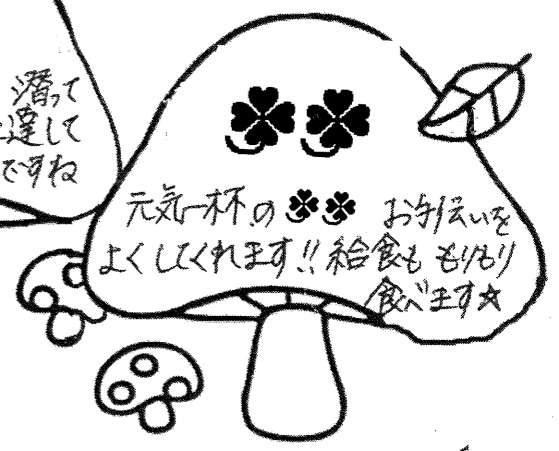 潜って
達して
ですね
元気一杯の🍀🍀 お手伝いを
よくしてくれます!! 給食も もりもり
食べます☆